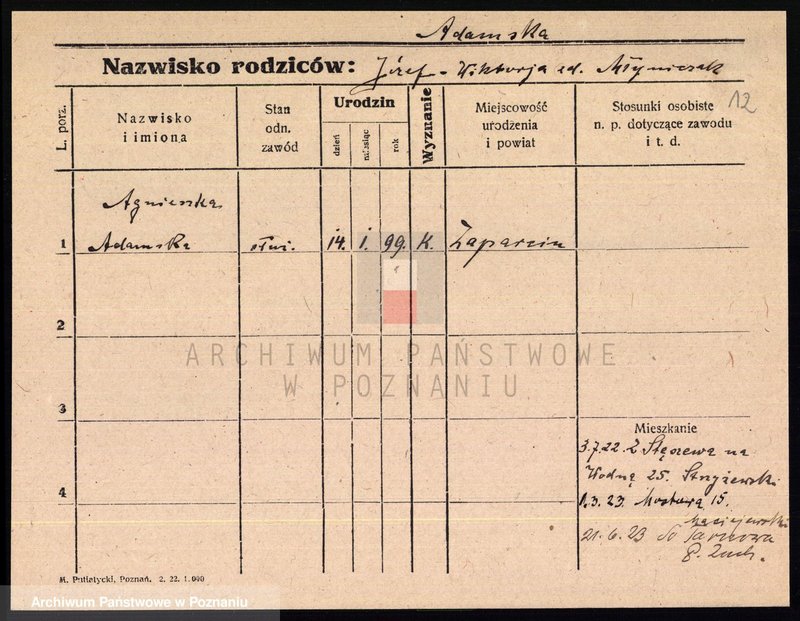 Adamska
Nazwisko rodziców: Józef - Wiktorja zd. Młyniczak
12
L. porz.
Nazwisko
i imiona
Stan
odn.
zawód
Urodzin
dzień
miesiąc
rok
Wyznanie
Miejscowość
urodzenia
i powiat
Stosunki osobiste
n. p. dotyczące zawodu
i t. d.
Agnieszka
1 Adamska służ. 14. 1. 99. K. Zaparcin
2
ARCHIWUM PAŃSTWOWE
W POZNANIU
3
Mieszkanie
3.7.22. Z Stęszewa na
Wodną 25. Stryżewski
4
1.3.23. Mostową 15.
Maciejewski
21.6.23 do Tarnowa
p.
M. Putiatycki, Poznań. 2. 22. 1.000
Archiwum Państwowe w Poznaniu